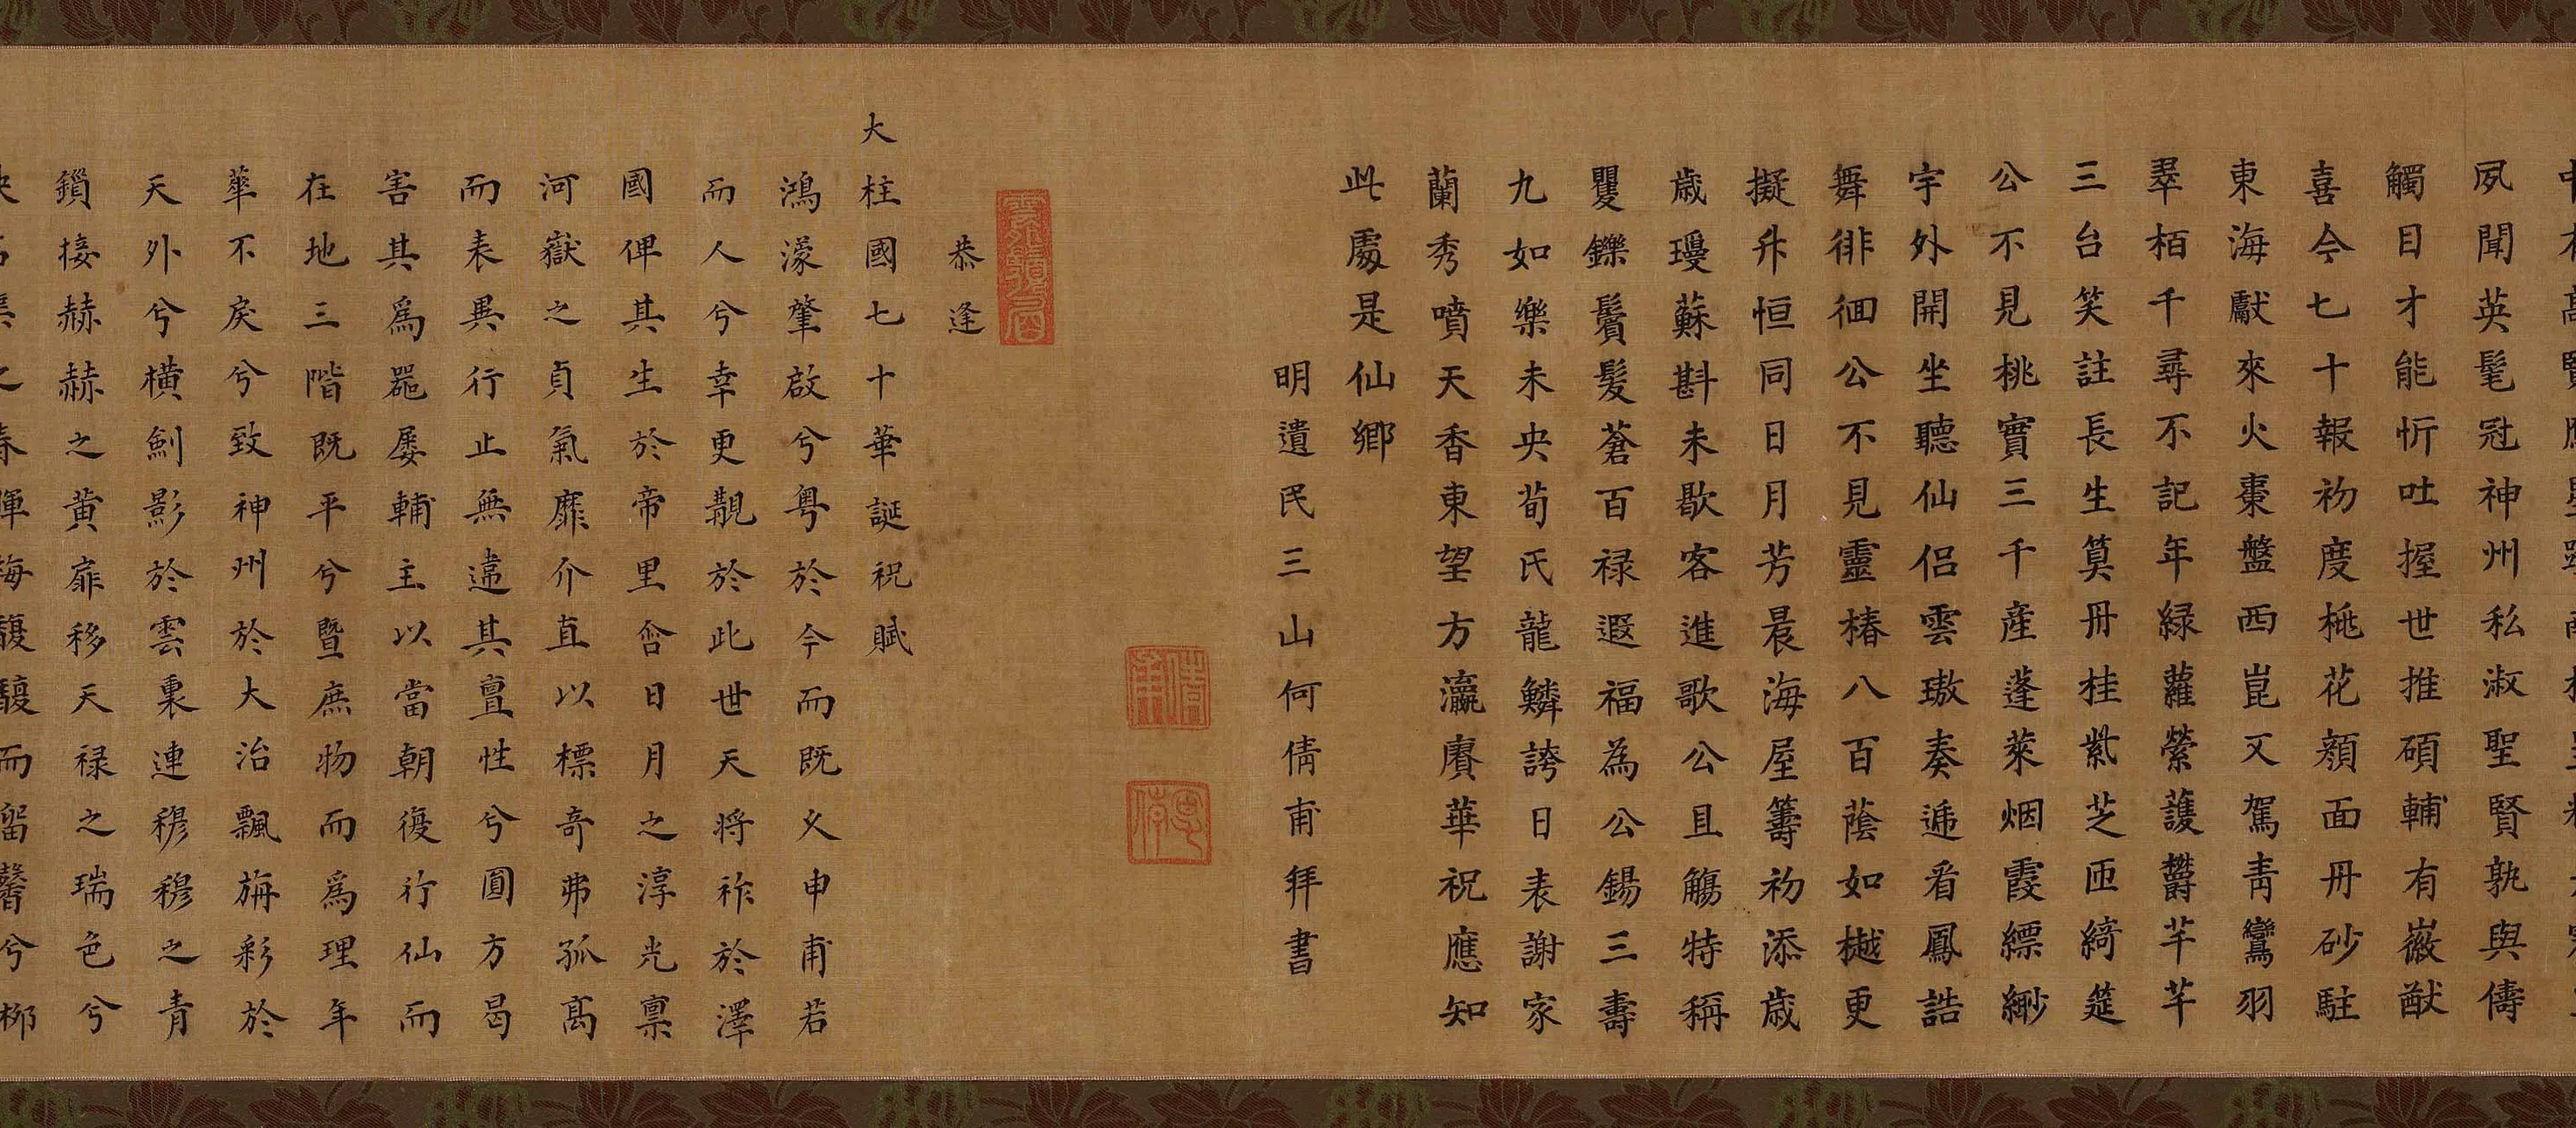 夙聞英髦冠神州私淑聖賢孰與儔
觸目才能忻吐握世推碩輔有嶶猷
喜今七十報初度桃花顏面丹砂駐
東海獻來火棗盤西崑又駕青鸞羽
翠栢千尋不記年緑蘿縈護欝芊芊
三台笑註長生筭丹桂紫芝匝綺筵
公不見桃實三千產蓬萊烟霞縹緲
宇外開坐聽仙侣雲璈奏遞看鳳誥
舞徘徊公不見靈椿八百蔭如樾更
擬升恒同日月芳晨海屋籌初添歲
歲瓊蘇斟未歇客進歌公且觴特稱
矍鑠鬢髮蒼百禄遐福為公錫三壽
九如樂未央荀氏龍鱗誇日表謝家
蘭秀噴天香東望方瀛賡華祝應知
此處是仙鄉
明遺民三山何倩甫拜書
恭逢
大柱國七十華誕祝賦
鴻濛肇啟兮粤於今而既乂申甫若
而人兮幸更覯於此世天將祚於澤
國俾其生於帝里含日月之淳光禀
河嶽之貞氣靡介直以標奇弗孤高
而表異行止無違其亶性兮圓方曷
害其爲器屡輔主以當朝復行仙而
在地三階既平兮暨庶物而爲理年
華不戾兮致神州於大治飄旃彩於
天外兮橫劍影於雲裏連穆穆之青
鎖接赫赫之黄扉移天禄之瑞色兮